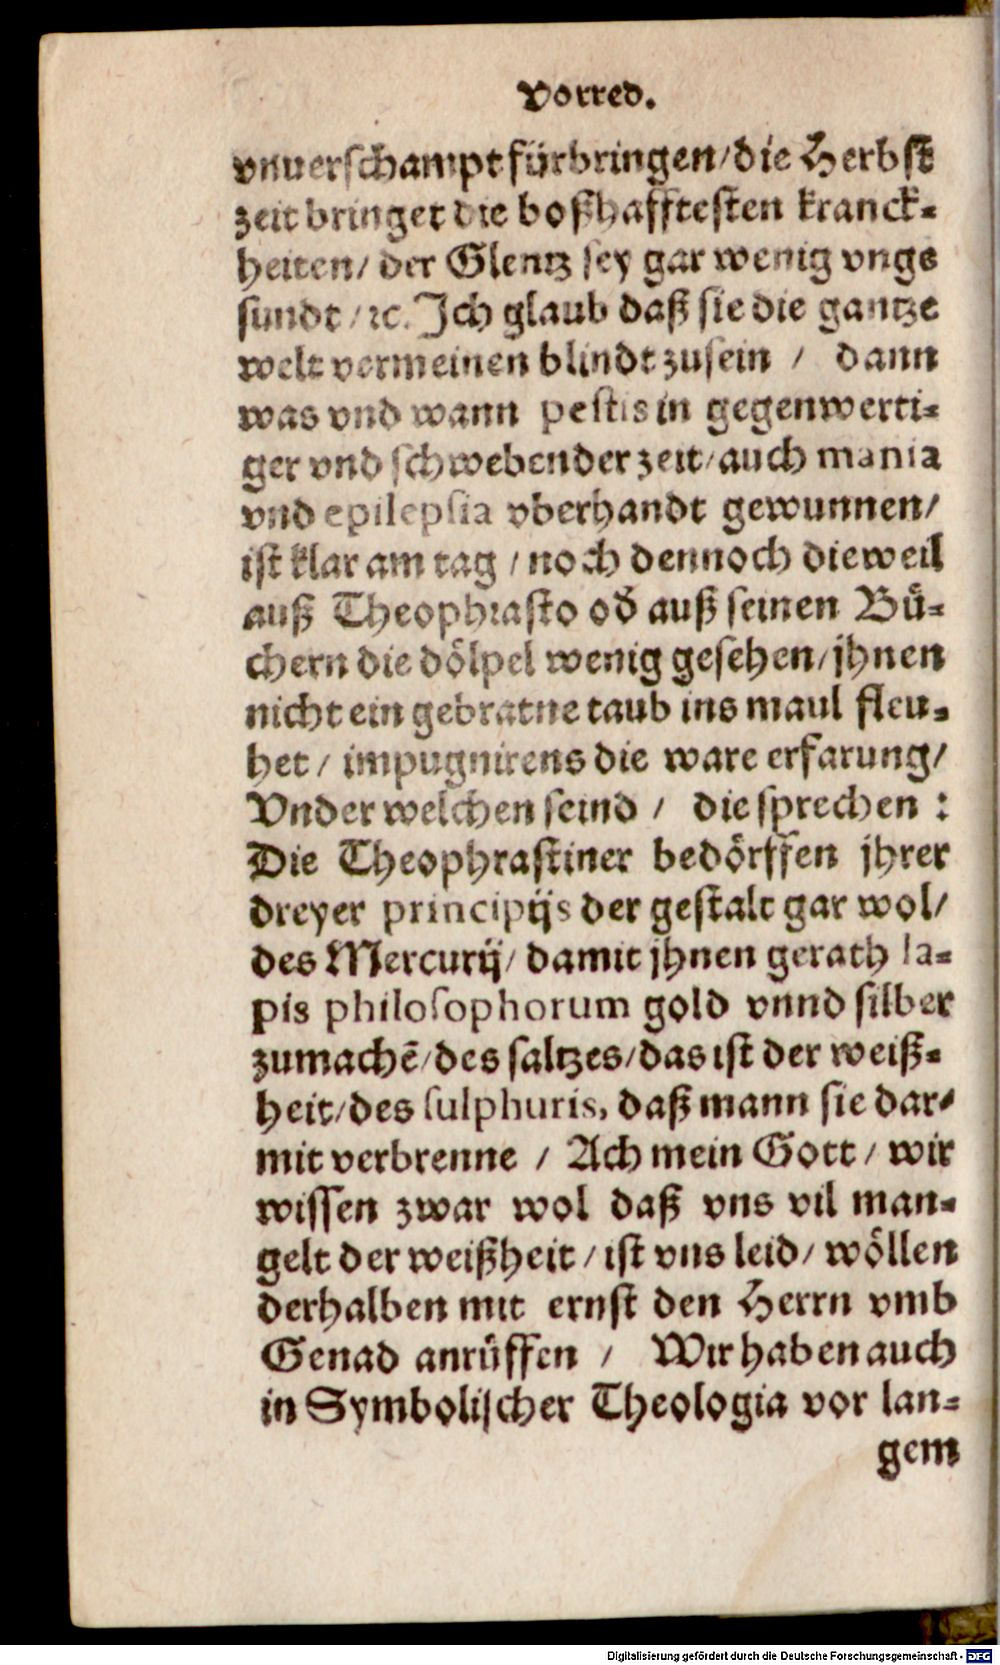 Vorred.
vnuerschampt fürbringen/die Herbst
zeit bringet die boßhafftesten kranck⸗
heiten/ der Glentz sey gar wenig vnge
sundt /ꝛc. Ich glaub daß sie die gantze
welt vermeinen blindt zusein / dann
was vnd wann pestis in gegenwerti⸗
ger vnd schwebender zeit/auch mania
vnd epilepsia vberhandt gewunnen/
ist klar am tag / noch dennoch dieweil
auß Theophrasto od̄ auß seinen Bü⸗
chern die dölpel wenig gesehen/jhnen
nicht ein gebratne taub ins maul fleu⸗
het / impugnirens die ware erfarung/
Vnder welchen seind / die sprechen :
Die Theophrastiner bedörffen jhrer
dreyer principijs der gestalt gar wol/
des Mercurij/ damit jhnen gerath la⸗
pis philosophorum gold vnnd silber
zumachē/des saltzes/das ist der weiß⸗
heit/des sulphuris, daß mann sie dar⸗
mit verbrenne / Ach mein Gott / wir
wissen zwar wol daß vns vil man⸗
gelt der weißheit / ist vns leid/ wöllen
derhalben mit ernst den Herrn vmb
Genad anrüffen / Wir haben auch
in Symbolischer Theologia vor lan⸗
gem
Digitalisierung gefördert durch die Deutsche Forschungsgemeinschaft - DFG